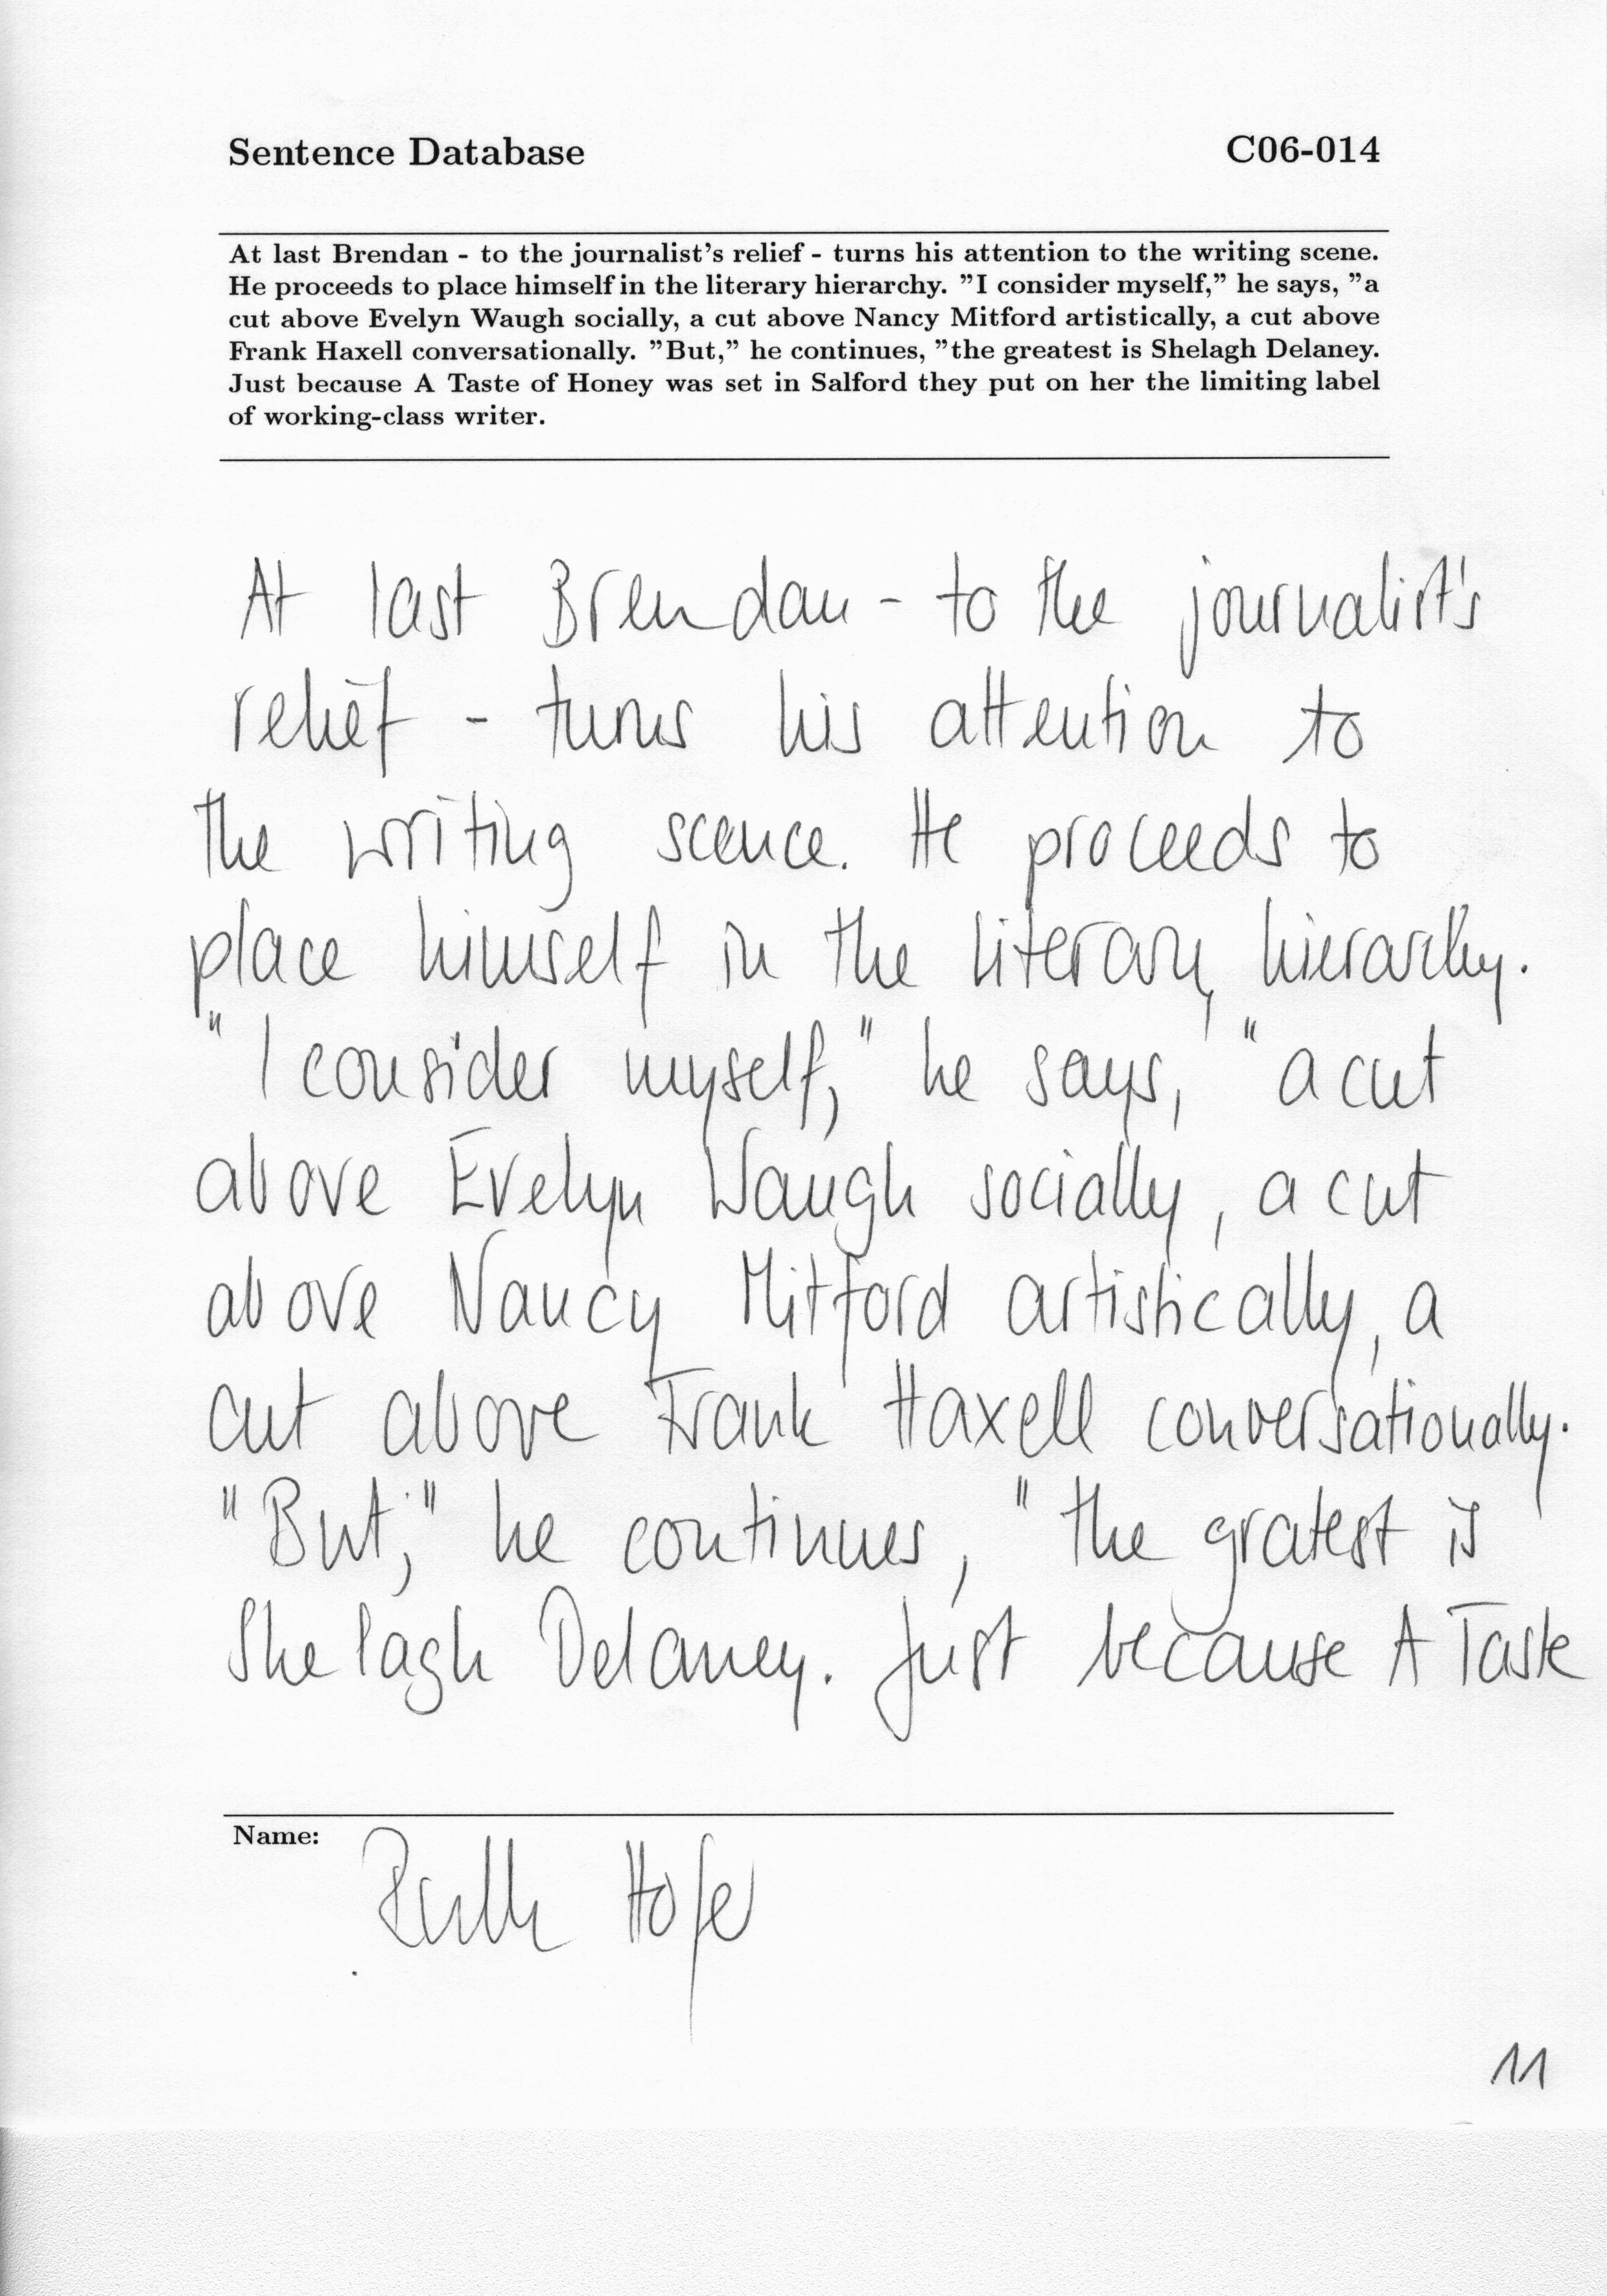 Sentence Database C06-014
At last Brendan - to the journalist's relief - turns his attention to the writing scene.
He proceeds to place himself in the literary hierarchy. "I consider myself," he says, "a
cut above Evelyn Waugh socially, a cut above Nancy Mitford artistically, a cut above
Frank Haxell conversationally. "But," he continues, "the greatest is Shelagh Delaney.
Just because A Taste of Honey was set in Salford they put on her the limiting label
of working-class writer.
At last Brendan - to the journalist's
relief - turns his attention to
the writing scence. He proceeds to
place himself in the literary hierarchy.
" I consider myself," he says, "a cut
above Evelyn Waugh socially, a cut
above Nancy Mitford artistically, a
cut above Frank Haxell conversationally.
"But," he continues, "the gratest is
Shelagh Delaney. Just because A Taste
Name: Ruth Hofer
11